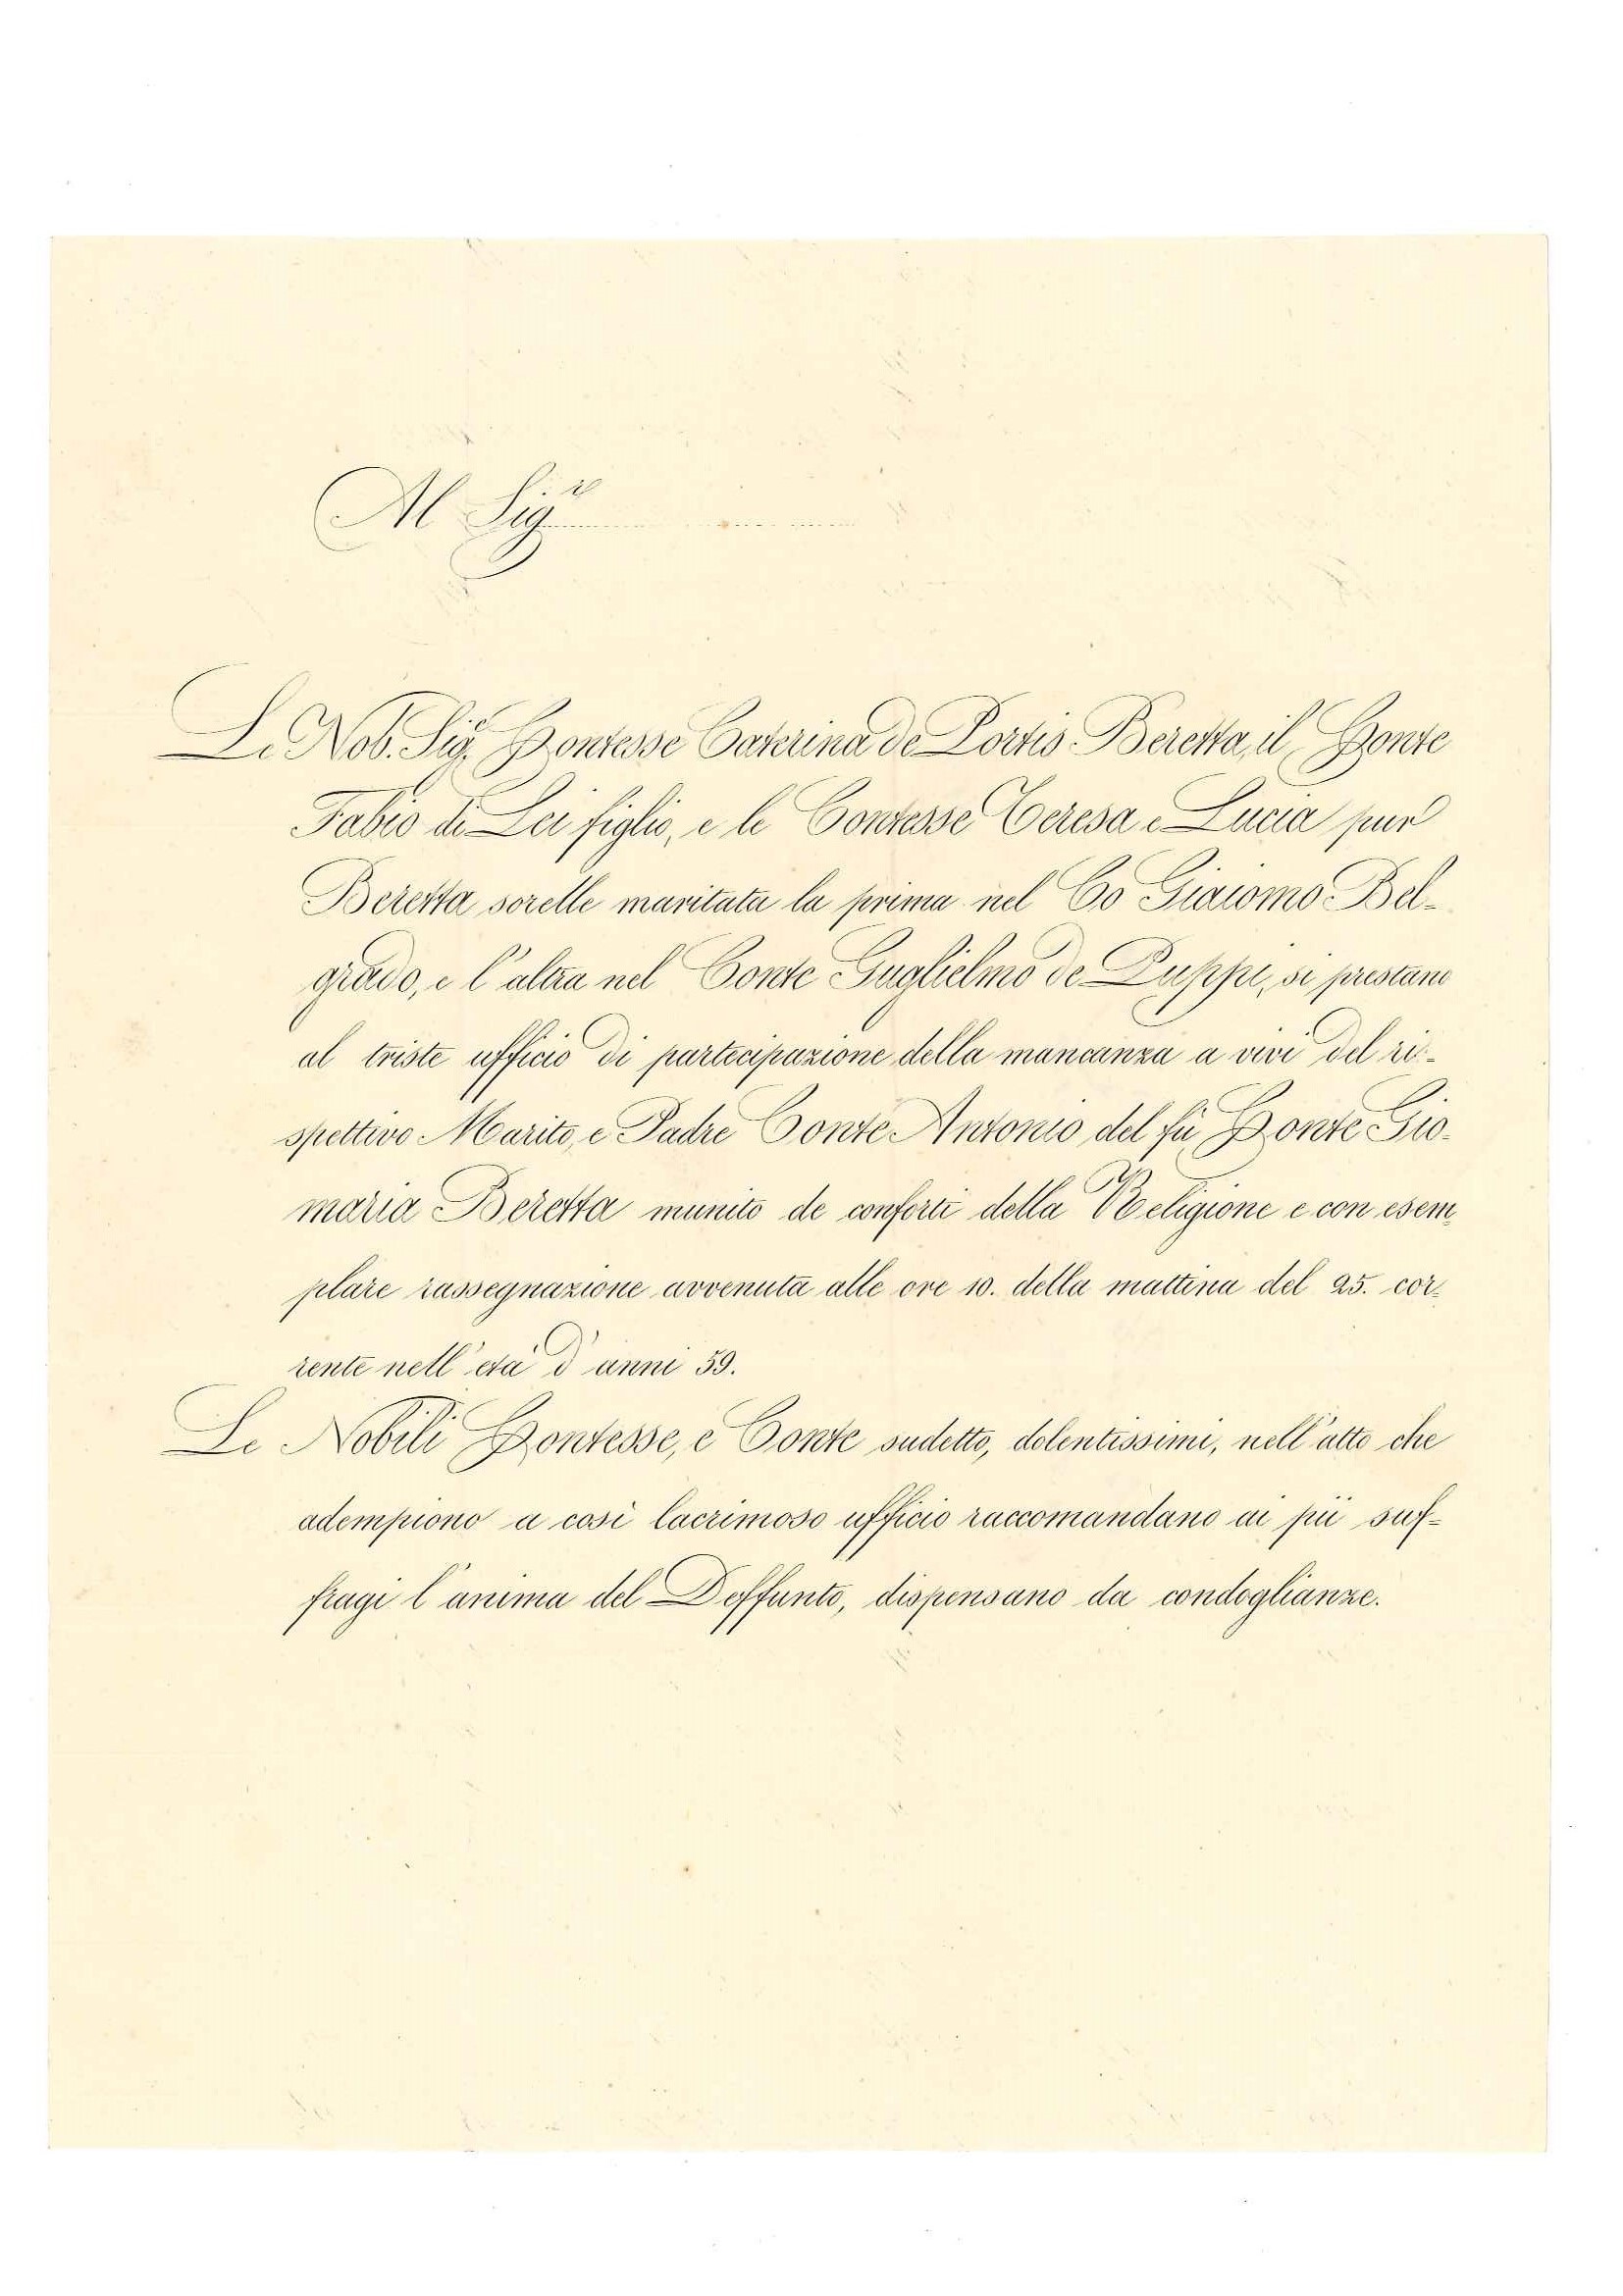 Al Sigr
Le Nob. Sige Contesse Caterina de Portis Beretta, il Conte
Fabio di Lei figlio, e le Contesse Teresa e Lucia pur
Beretta sorelle maritata la prima nel Co Giacomo Bel-
grado, e l'altra nel Conte Guglielmo de Puppi, si prestano
al triste ufficio di partecipazione della mancanza a vivi del ri-
spettivo Marito, e Padre Conte Antonio del fù Conte Gio-
maria Beretta munito de conforti della Religione e con esem-
plare rassegnazione avvenuta alle ore 10. della mattina del 25. cor-
rente nell'età d'anni 59.
Le Nobili Contesse, e Conte sudetto, dolentissimi, nell'atto che
adempiono a così lacrimoso ufficio raccomandano ai pii suf-
fragi l'anima del Deffunto, dispensano da condoglianze.